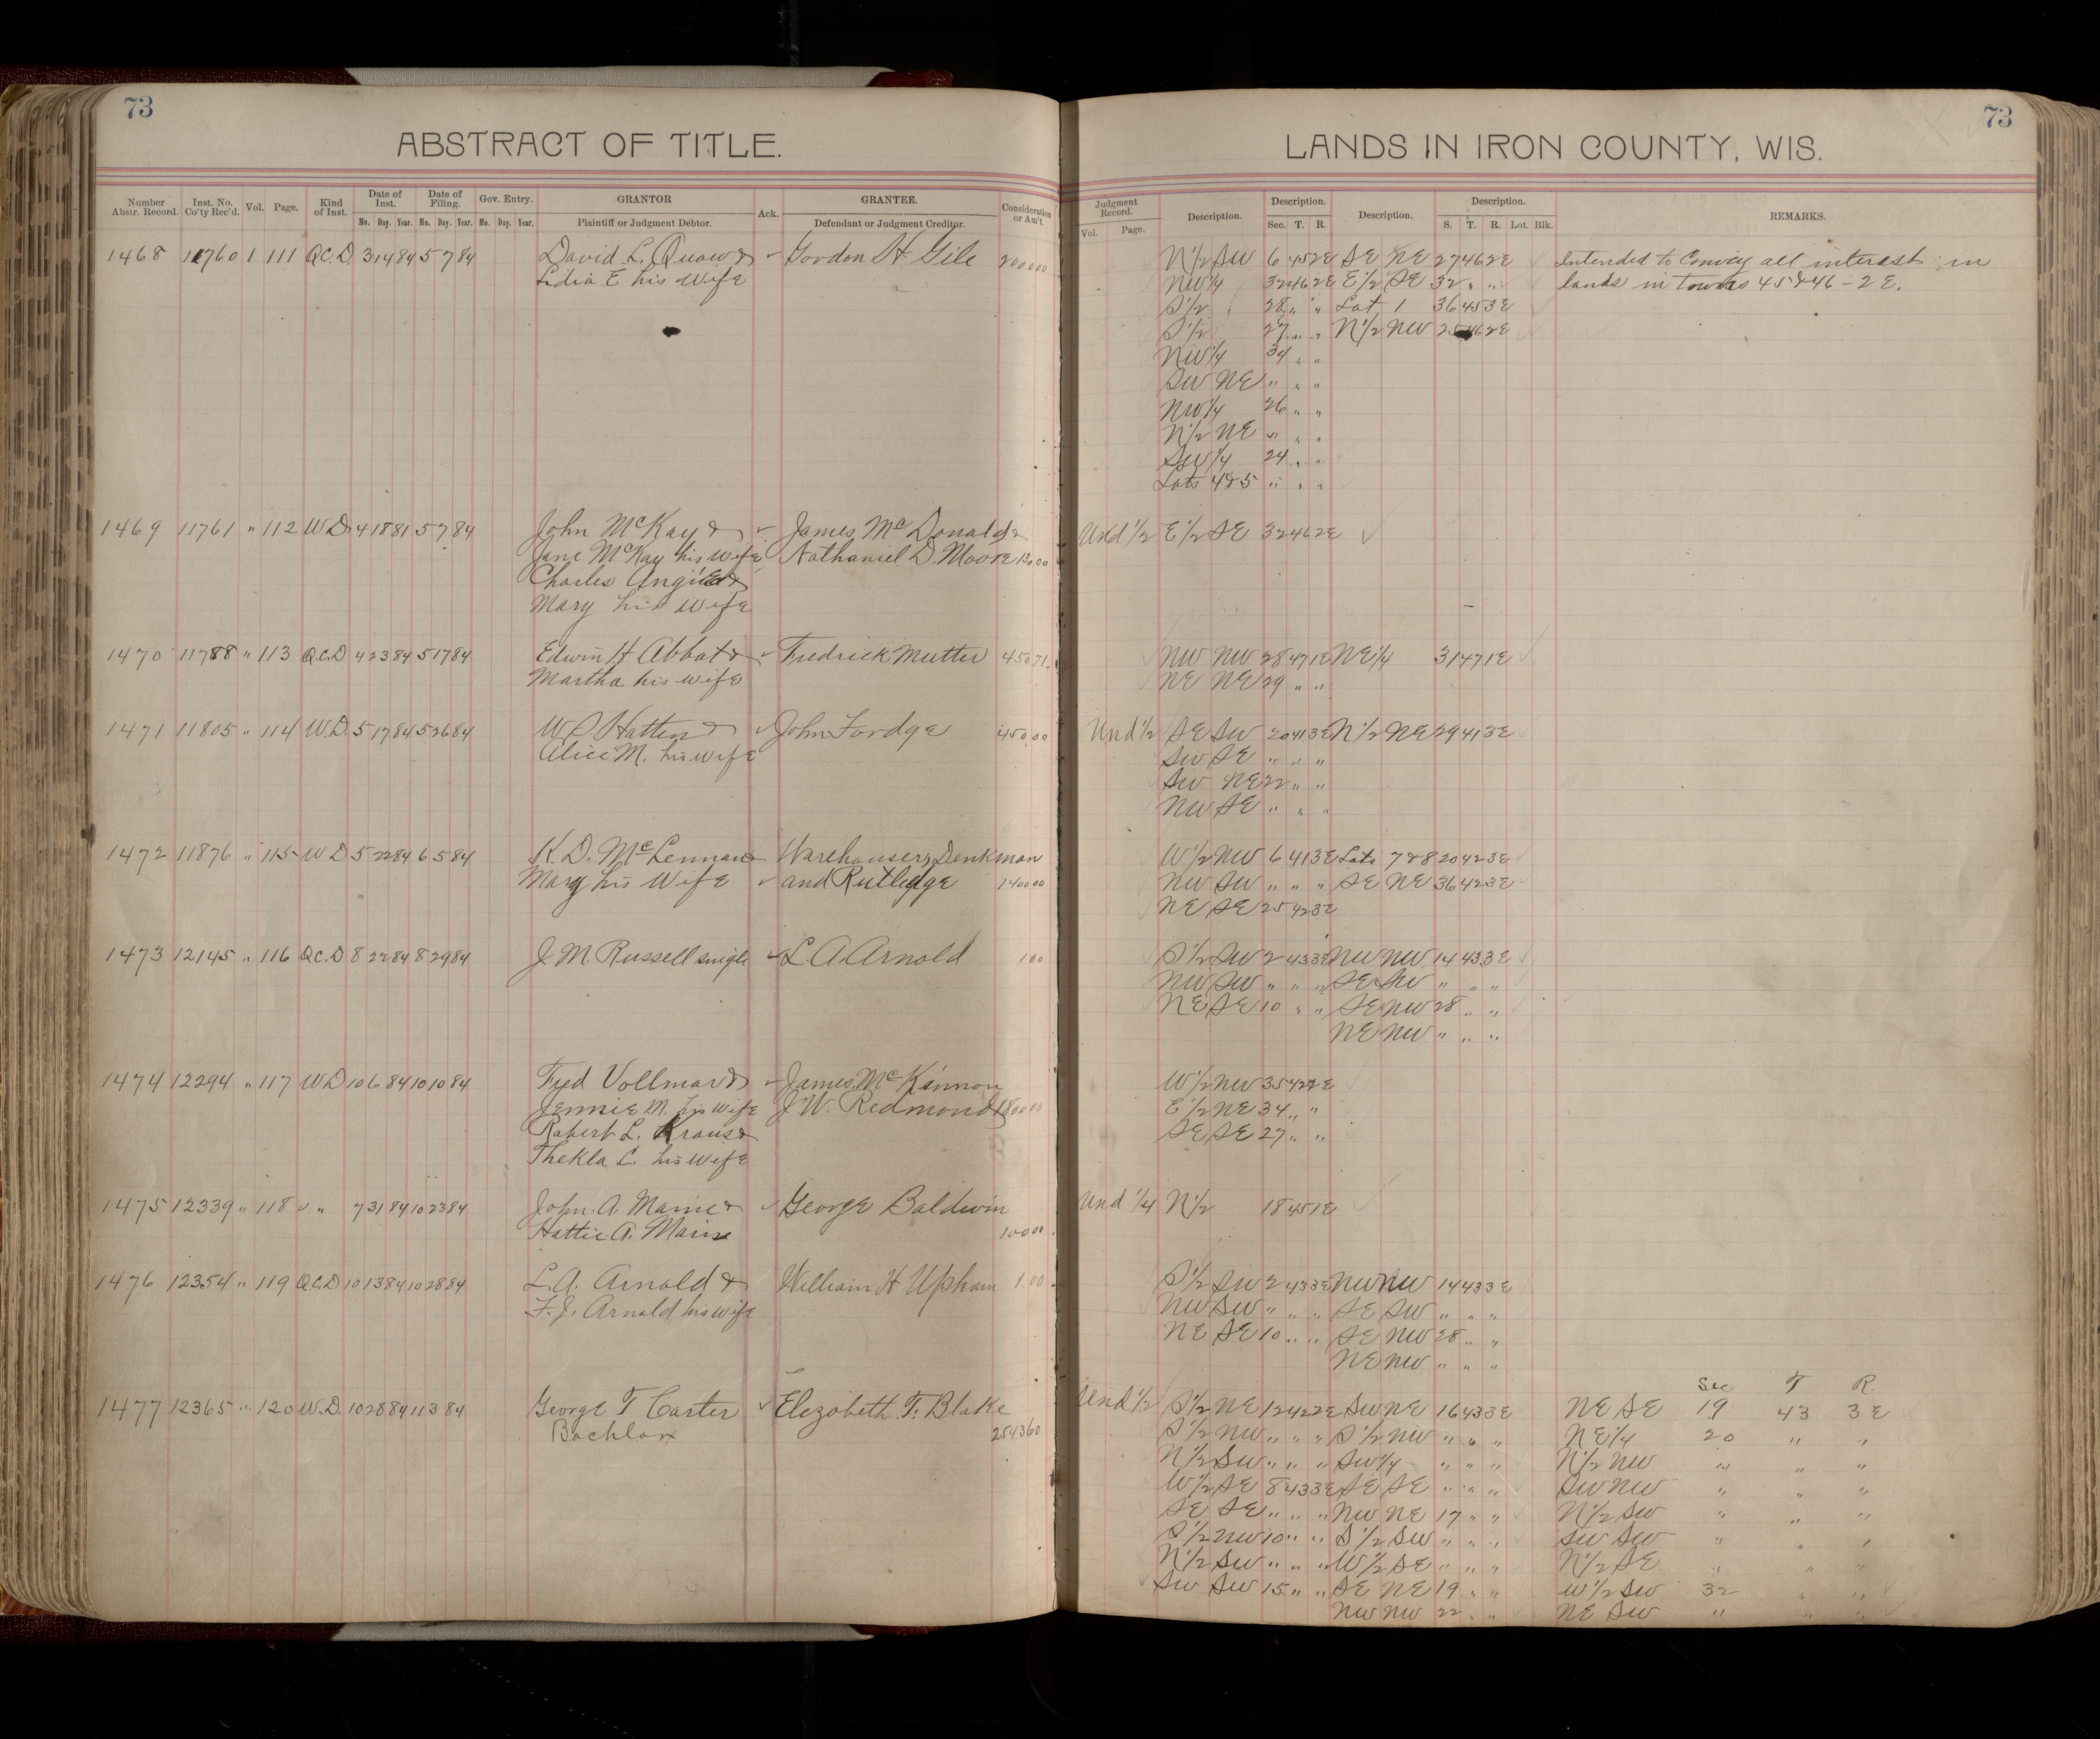 73
ABSTRACT OF TITLE.
Number Abstr. Record. Inst. No. Co'ty Rec'd. Vol. Page. Kind of Inst. Date of Inst. Mo. Day. Year. Date of Filing. Mo. Day. Year. Gov. Entry. Mo. Day. Year. GRANTOR Plaintiff or Judgment Debtor. Ack. GRANTEE. Defendant or Judgment Creditor. Consideration or Am't.
1468 11760 1 111 Q.C.D. 3 14 84 5 7 84 David L. Quaw & Gordon H. Gile 20000
Lidia E his wife
1469 11761 " 112 W.D. 4 18 81 5 7 84 John McKay & James McDonald &
Jane McKay his wife Nathaniel D. Moore 1300
Charles &
Mary his wife
1470 11788 " 113 Q.C.D 4 23 84 5 17 84 Edwin H Abbot & Fredrick Mutter 45071
Martha his wife
1471 11805 " 114 W.D. 5 17 84 5 26 84 W. Hatten & John Fordge 45000
Alice M. his wife
1472 11876 " 115 W D 5 22 84 6 5 84 K. D. McLennan & Warehausers, Denkman
Mary his wife and Rutledge 140000
1473 12145 " 116 Q.C.D 8 22 84 8 29 84 J. M. Russell single L. A. Arnold 100
1474 12294 " 117 W D 10 6 84 10 10 84 Fred Vollmar & James McKinnon
Jennie M. his wife J. W. Redmond 180000
Robert L. Kraus &
Thekla C. his wife
1475 12339 " 118 " " 7 31 84 10 23 84 John A Marie & George Baldwin
Hattie A. 10000
1476 12354 " 119 Q.C.D 10 13 84 10 28 84 L. A. Arnold & William H Upham 100
F. J. Arnold his wife
1477 12365 " 120 W.D. 10 28 84 11 3 84 George T Carter Elezobeth T. Blake
Bachlor 254360
73
LANDS IN IRON COUNTY, WIS.
Judgment Record. Vol. Page. Description. Description. Sec. T. R. Description. Description. S. T. R. Lot. Blk. REMARKS.
N 1/2 SW 6 45 2E SE NE 27 46 2E Intended to Convey all interest in
NW 1/4 32 46 2E E 1/2 SE 32 " " lands in Towns 45 & 46 - 2 E.
S 1/2 28 " " Lot 1 36 45 3E
S 1/2 27 " " N 1/2 NW 25 46 2E
NW 1/4 34 " "
SW NE " " "
NW 1/4 26 " "
N 1/2 NE " " "
SW 1/4 24 " "
Lots 4 & 5 " " "
Und 1/2 E 1/2 SE 32 46 2E
NW NW 28 47 1E NE 1/4 31 47 1E
NE NE 29 " "
Und 1/2 SE SW 20 41 3E N 1/2 NE 29 41 3E
SW SE " " "
SW NE 22 " "
NW SE " " "
W 1/2 NW 6 41 3E Lots 7 & 8 20 42 3E
NW SW " " " SE NE 36 42 3E
NE SE 25 42 3E
S 1/2 SW 2 43 3E NW NW 14 43 3E
NW SW " " " SE SW " " "
NE SE 10 " " SE NW 28 " "
NE NW " " "
W 1/2 NW 35 42 2E
E 1/2 NE 34 " "
SE SE 27 " "
Und 1/4 N 1/2 18 45 1E
S 1/2 SW 2 43 3E NW NW 14 43 3E
NW SW " " " SE SW " " "
NE SE 10 " " SE NW 28 " "
NE NW " " "
Sec T R
Und 1/2 S 1/2 NE 12 42 2E SW NE 16 43 3E NE SE 19 43 3 E
S 1/2 NW " " " S 1/2 NW " " " NE 1/4 20 " "
N 1/2 SW " " " SW 1/4 " " " N 1/2 NW " " "
W 1/2 SE 8 43 3E SE SE " " " SW NW " " "
SE SE " " " NW NE 17 " " N 1/2 SW " " "
S 1/2 NW 10 " " S 1/2 SW " " " SW SW " " "
N 1/2 SW " " " W 1/2 SE " " " N 1/2 SE " " "
SW SW 15 " " SE NE 19 " " W 1/2 SW 32 " "
NW NW 22 " " NE SW " " "